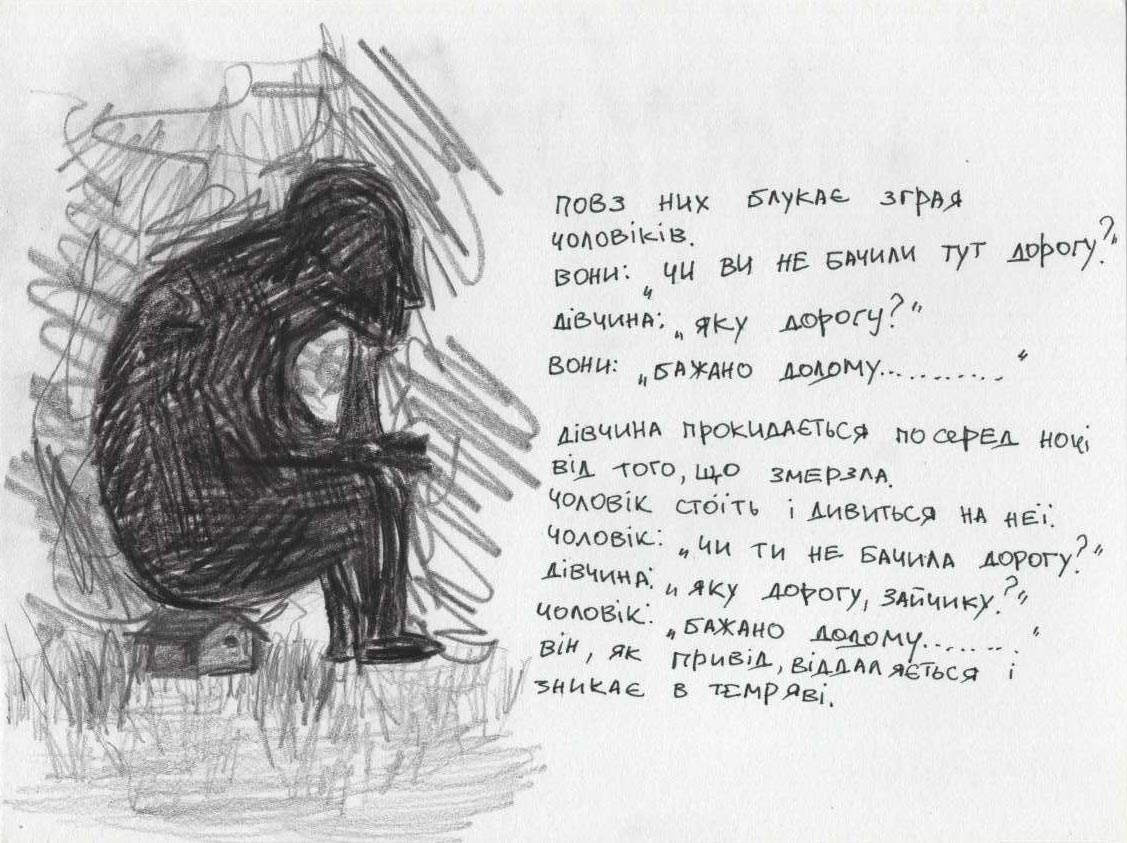 повз них блукає зграя
чоловіків.
вони: „чи ви не бачили тут дорогу?“
дівчина: „яку дорогу?“
вони: „бажано додому...........“
дівчина прокидається посеред ночі
від того, що змерзла.
чоловік стоїть і дивиться на неї.
чоловік: „чи ти не бачила дорогу?“
дівчина: „яку дорогу, зайчику?“
чоловік: „бажано додому........“
він, як привід, віддаляється і
зникає в темряві.